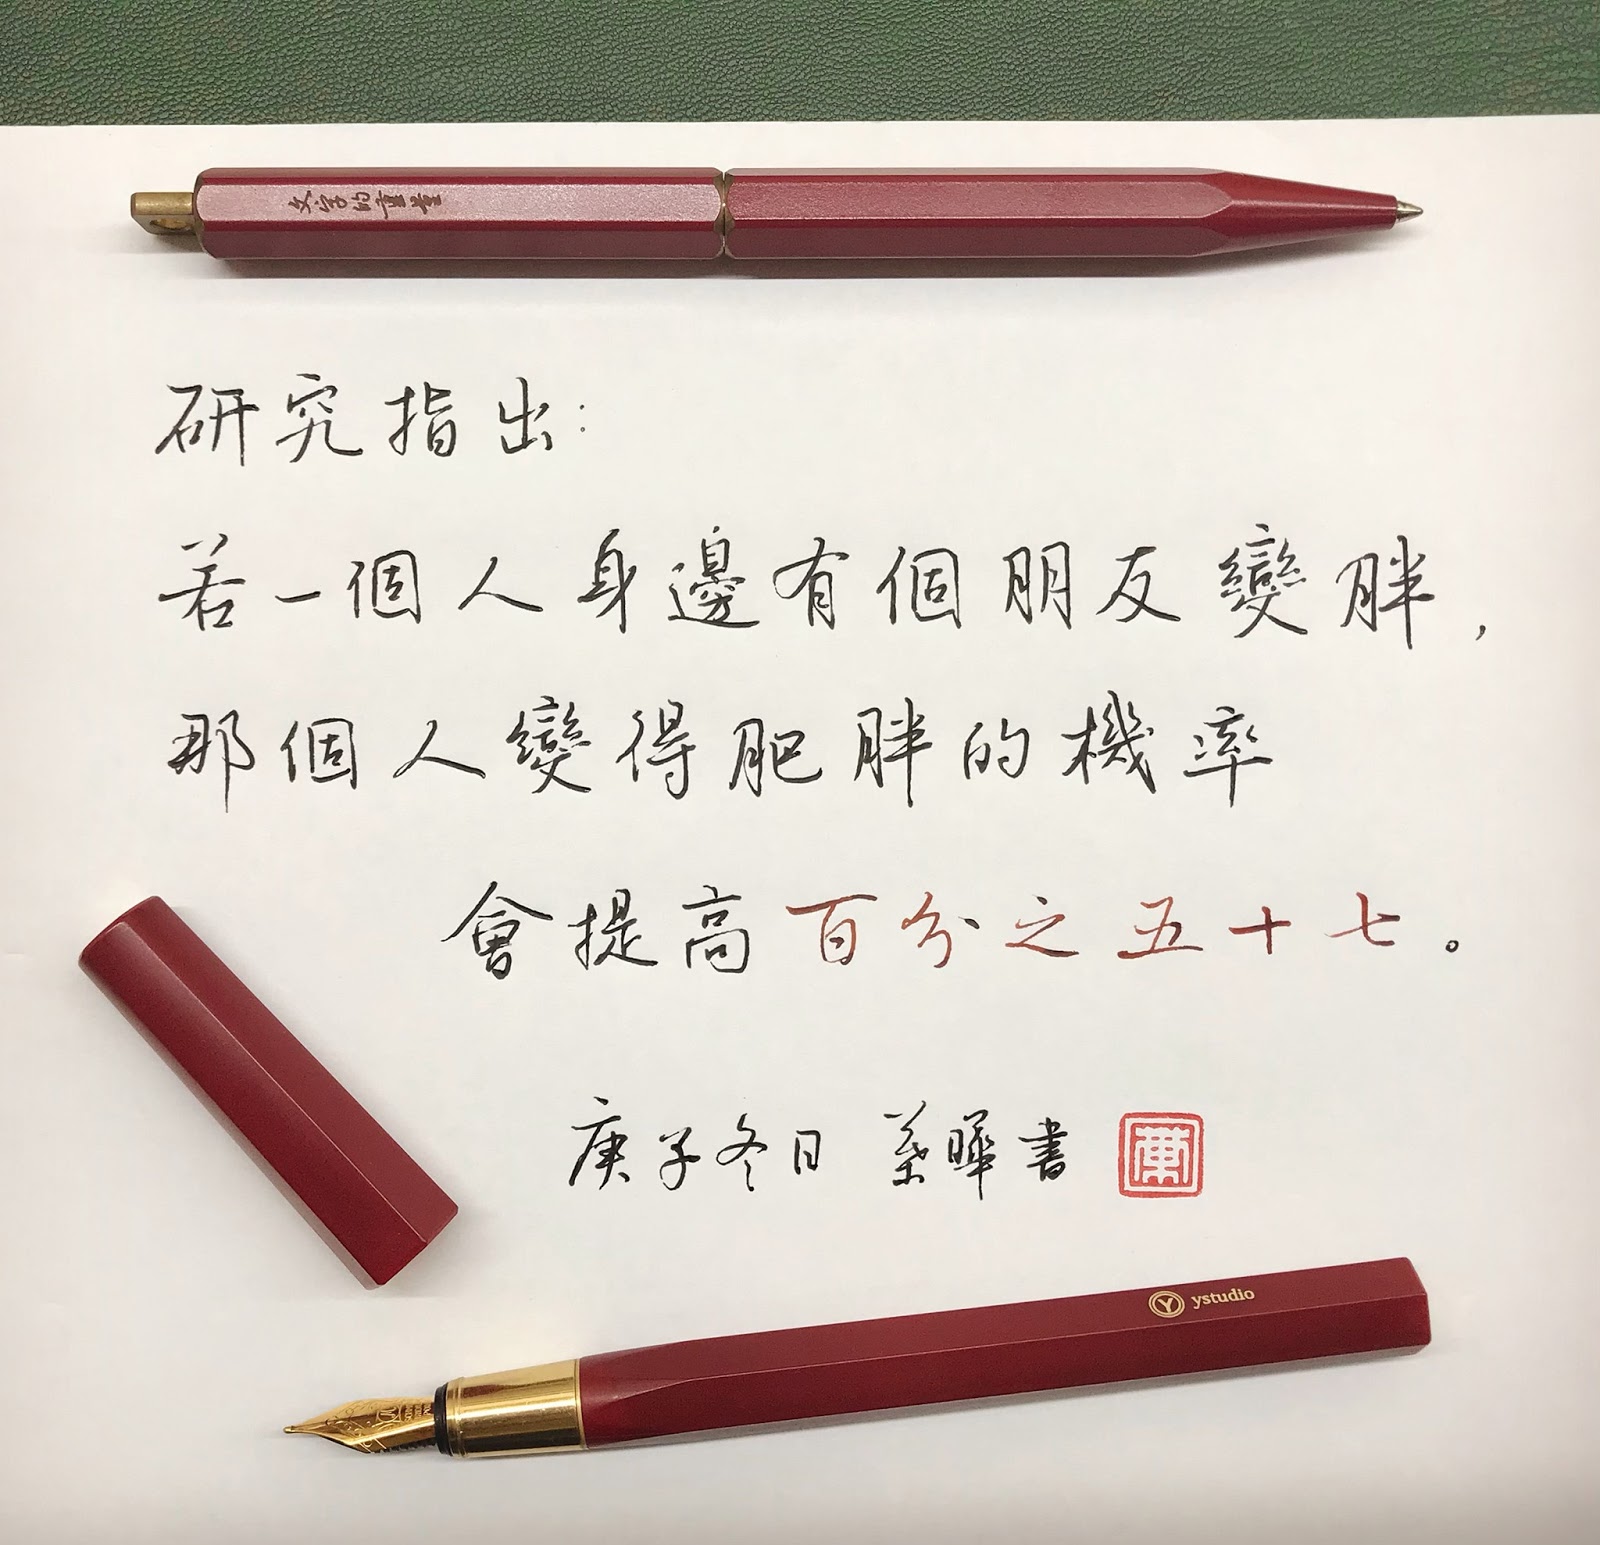 文字的重量
研究指出:
若一個人身邊有個朋友變胖,
那個人變得肥胖的機率
會提高百分之五十七。
庚子冬日 葉曄書
Y ystudio